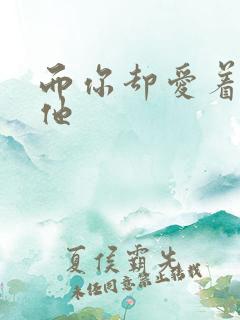 而你却愛着
他
夏侯霸先
未经同意禁止转载